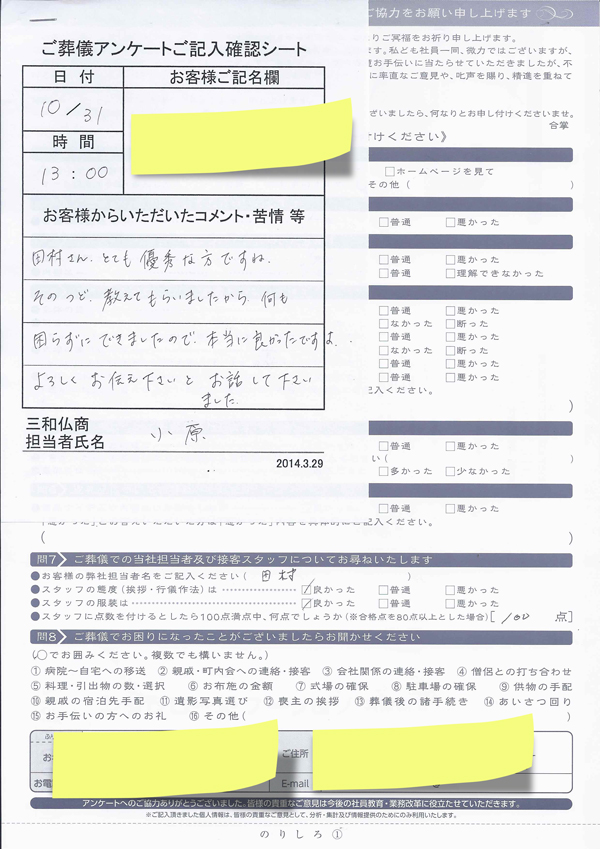 ご協力をお願い申し上げます
ご冥福をお祈り申し上げます。
ます。私ども社員一同、微力ではございますが、
お手伝いに当たらせていただきましたが、不
に率直なご意見や、叱声を賜り、精進を重ねて
ざいましたら、何なりとお申し付けくださいませ。
合掌
付けください》
ご葬儀アンケートご記入確認シート
日付
お客様ご記名欄
10/31
時間
13:00
お客様からいただいたコメント・苦情 等
田村さん、とても優秀な方ですね。
そのつど、教えてもらいましたから、何も
困らずにできましたので、本当に良かったですよ。
よろしく お伝え下さいと お話して下さい
ました。
三和仏商
担当者氏名
小原
2014.3.29
□ホームページを見て
その他( )
□普通 □悪かった
□普通 □悪かった
□普通 □理解できなかった
□普通 □悪かった
□なかった □断った
□普通 □悪かった
□なかった □断った
□普通 □悪かった
□普通 □悪かった
記入ください。
)
□普通 □悪かった
い( )
□多かった □少なかった
□普通 □悪かった
( )
問7 ご葬儀での当社担当者及び接客スタッフについてお尋ねいたします
●お客様の弊社担当者名をご記入ください( 田村 )
●スタッフの態度(挨拶・行儀作法)は ☑良かった □普通 □悪かった
●スタッフの服装は ☑良かった □普通 □悪かった
●スタッフに点数を付けるとしたら100点満点中、何点でしょうか(※合格点を80点以上とした場合)[ 100 点]
問8 ご葬儀でお困りになったことがございましたらお聞かせください
(○でお囲みください。複数でも構いません。)
①病院〜自宅への移送 ②親戚・町内会への連絡・接客 ③会社関係の連絡・接客 ④僧侶との打ち合わせ
⑤料理・引出物の数・選択 ⑥お布施の金額 ⑦式場の確保 ⑧駐車場の確保 ⑨供物の手配
⑩親戚の宿泊先手配 ⑪遺影写真選び ⑫喪主の挨拶 ⑬葬儀後の諸手続き ⑭あいさつ回り
⑮お手伝いの方へのお礼 ⑯その他( )
ご住所
お電
E-mail
アンケートへのご協力ありがとうございました。皆様の貴重なご意見は今後の社員教育・業務改革に役立たせていただきます。
※ご記入頂きました個人情報は、皆様の貴重なご意見として、分析・集計及び情報提供のためにのみ利用いたします。
のりしろ①